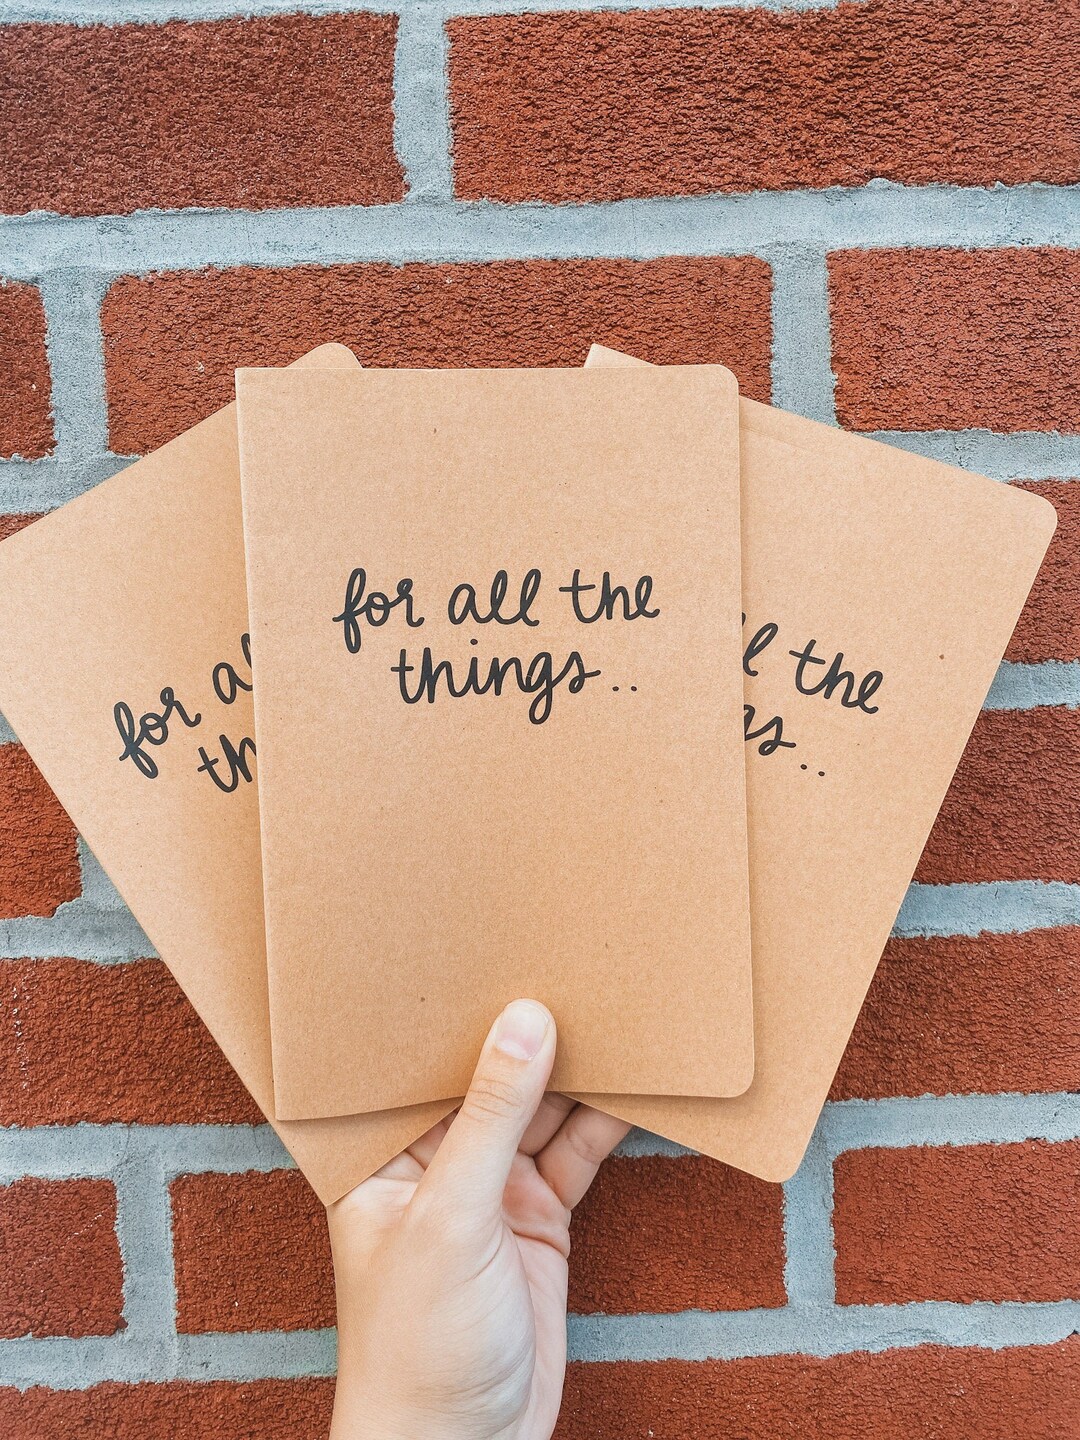 for all the
things..
for al
th
l the
gs..